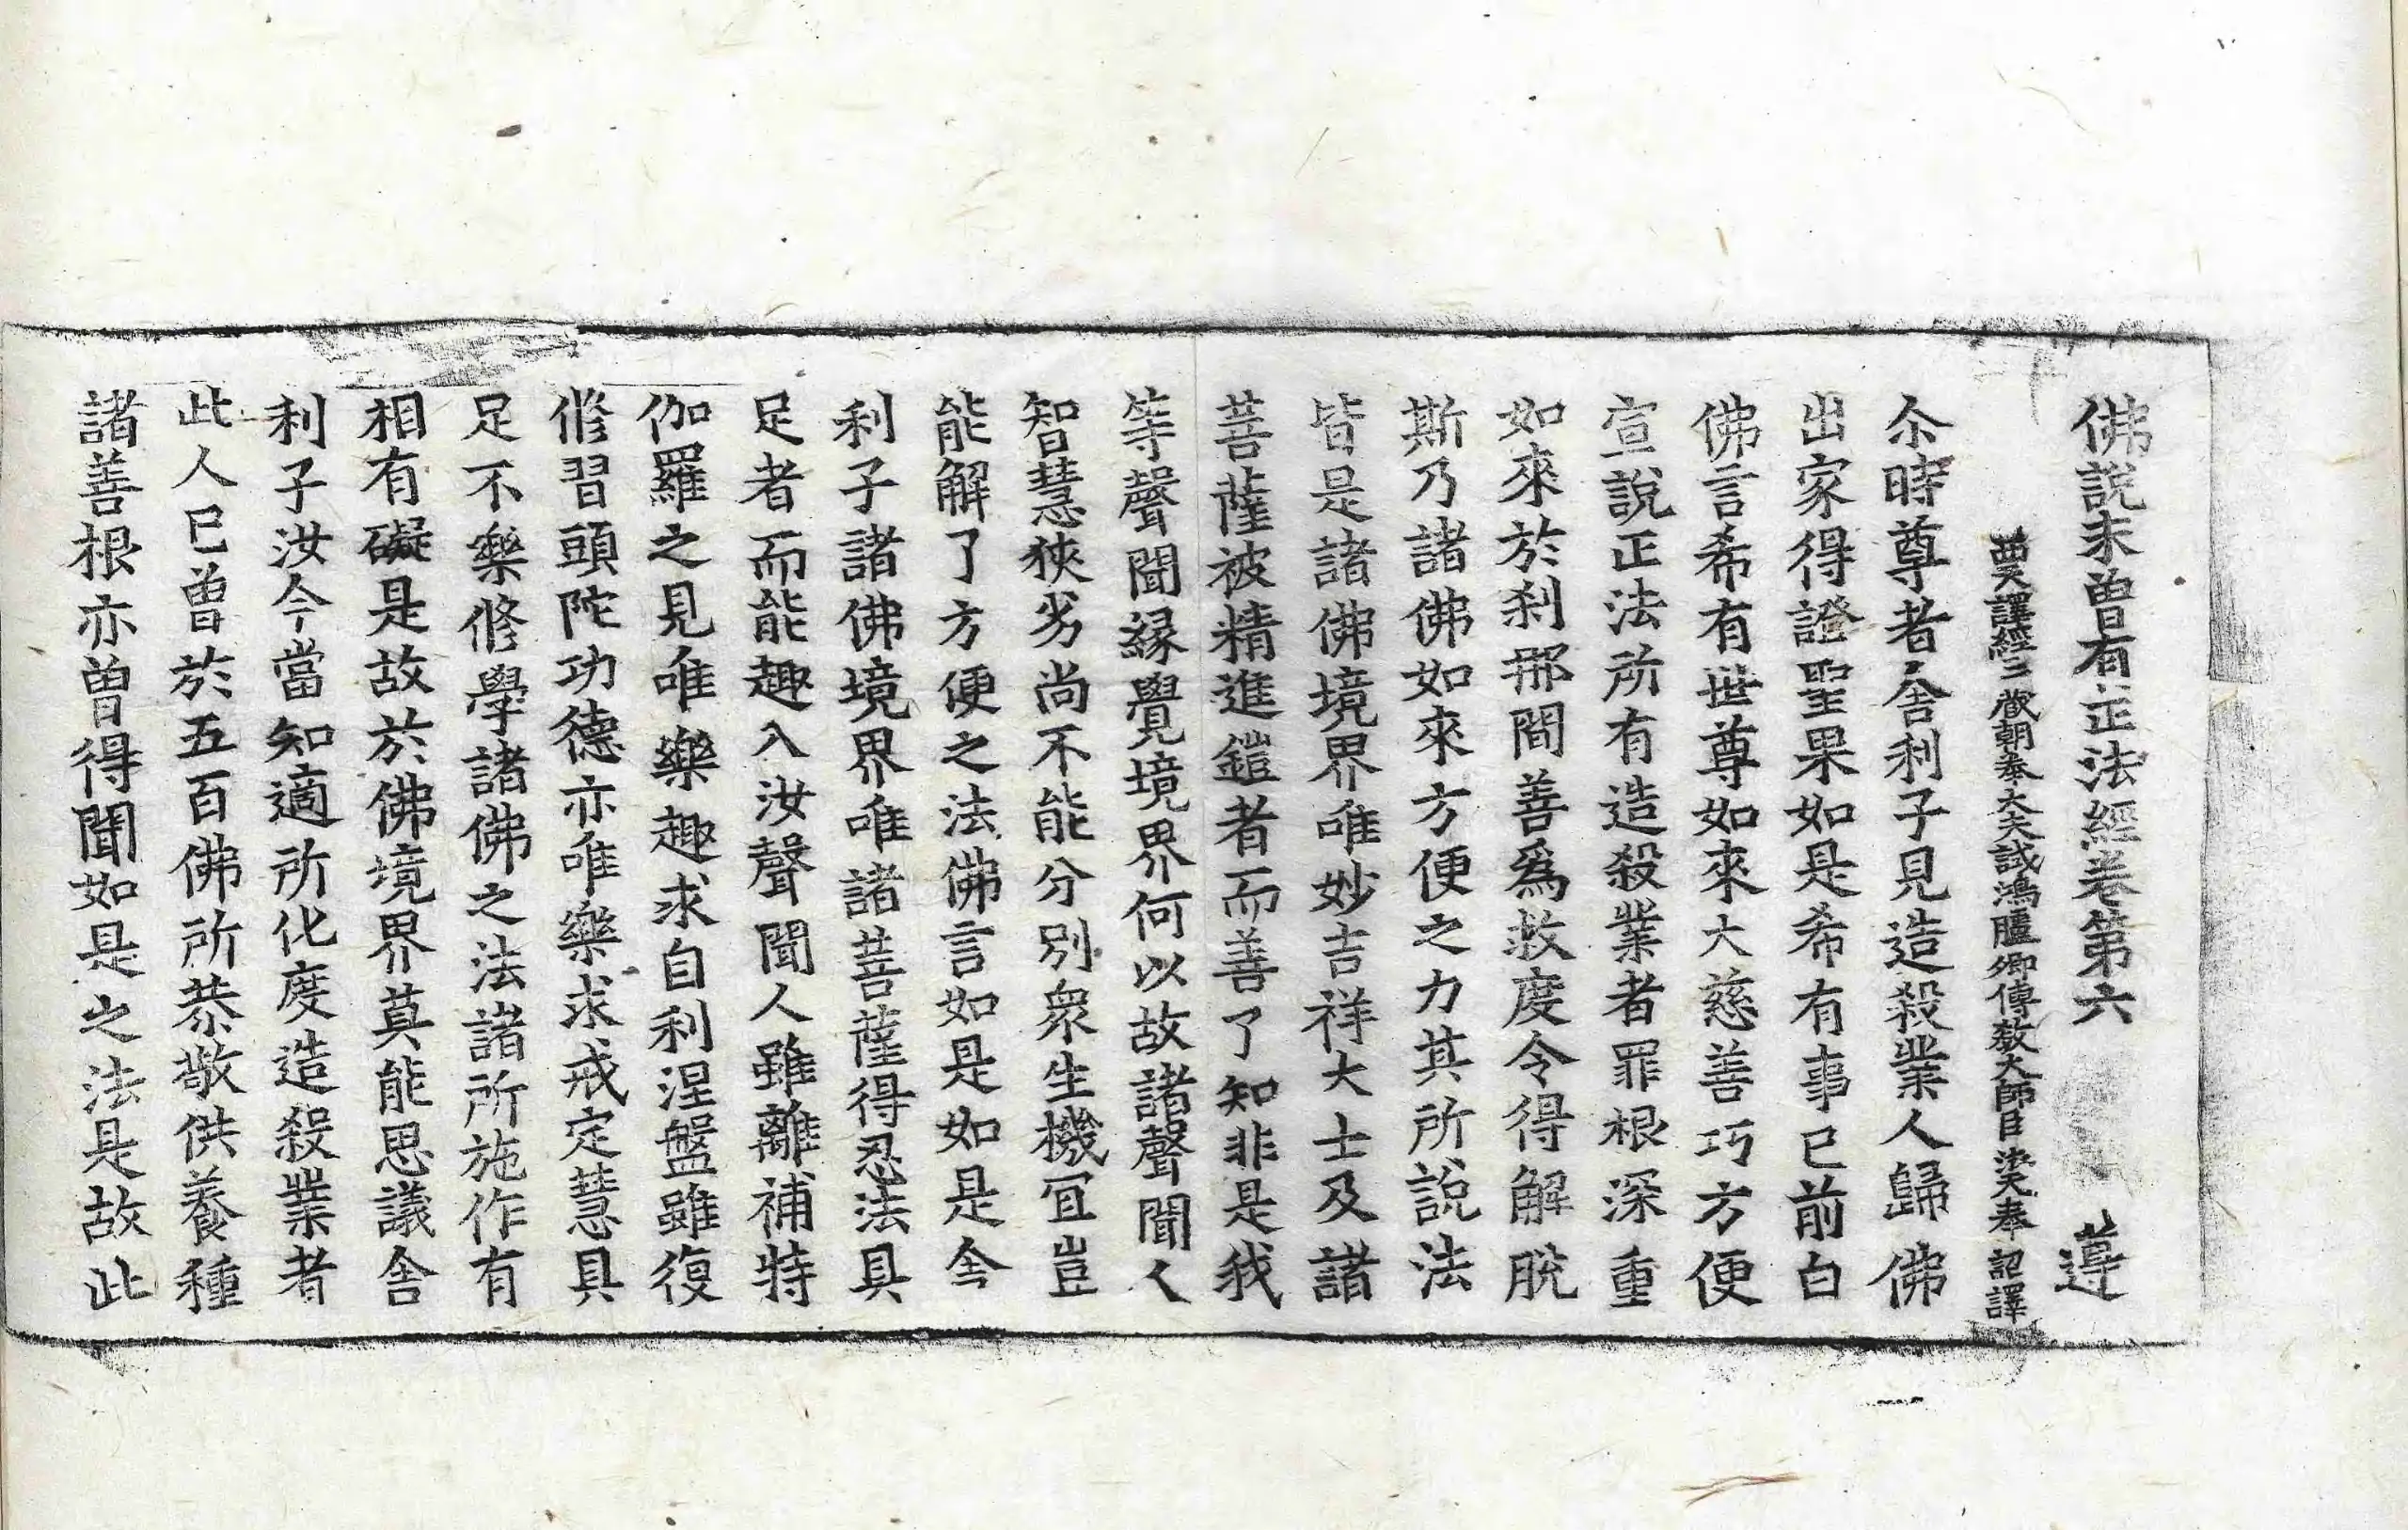 佛說未曾有正法經卷第六 遵
西天譯經三藏朝奉大夫試鴻臚卿傳教大師臣法天奉 詔譯
尒時尊者舍利子見造殺業人歸佛
出家得證聖果如是希有事已前白
佛言希有世尊如來大慈善巧方便
宣說正法所有造殺業者罪根深重
如來於刹那間善爲救度令得解脫
斯乃諸佛如來方便之力其所說法
皆是諸佛境界唯妙吉祥大士及諸
菩薩被精進鎧者而善了知非是我
等聲聞緣覺境界何以故諸聲聞人
智慧狹劣尚不能分別衆生機冝豈
能解了方便之法佛言如是如是舍
利子諸佛境界唯諸菩薩得忍法具
足者而能趣入汝聲聞人雖離補特
伽羅之見唯樂趣求自利涅盤雖復
修習頭陀功德亦唯樂求戒定慧具
足不樂修學諸佛之法諸所施作有
相有礙是故於佛境界莫能思議舍
利子汝今當知適所化度造殺業者
此人已曾於五百佛所恭敬供養種
諸善根亦曾得聞如是之法是故此